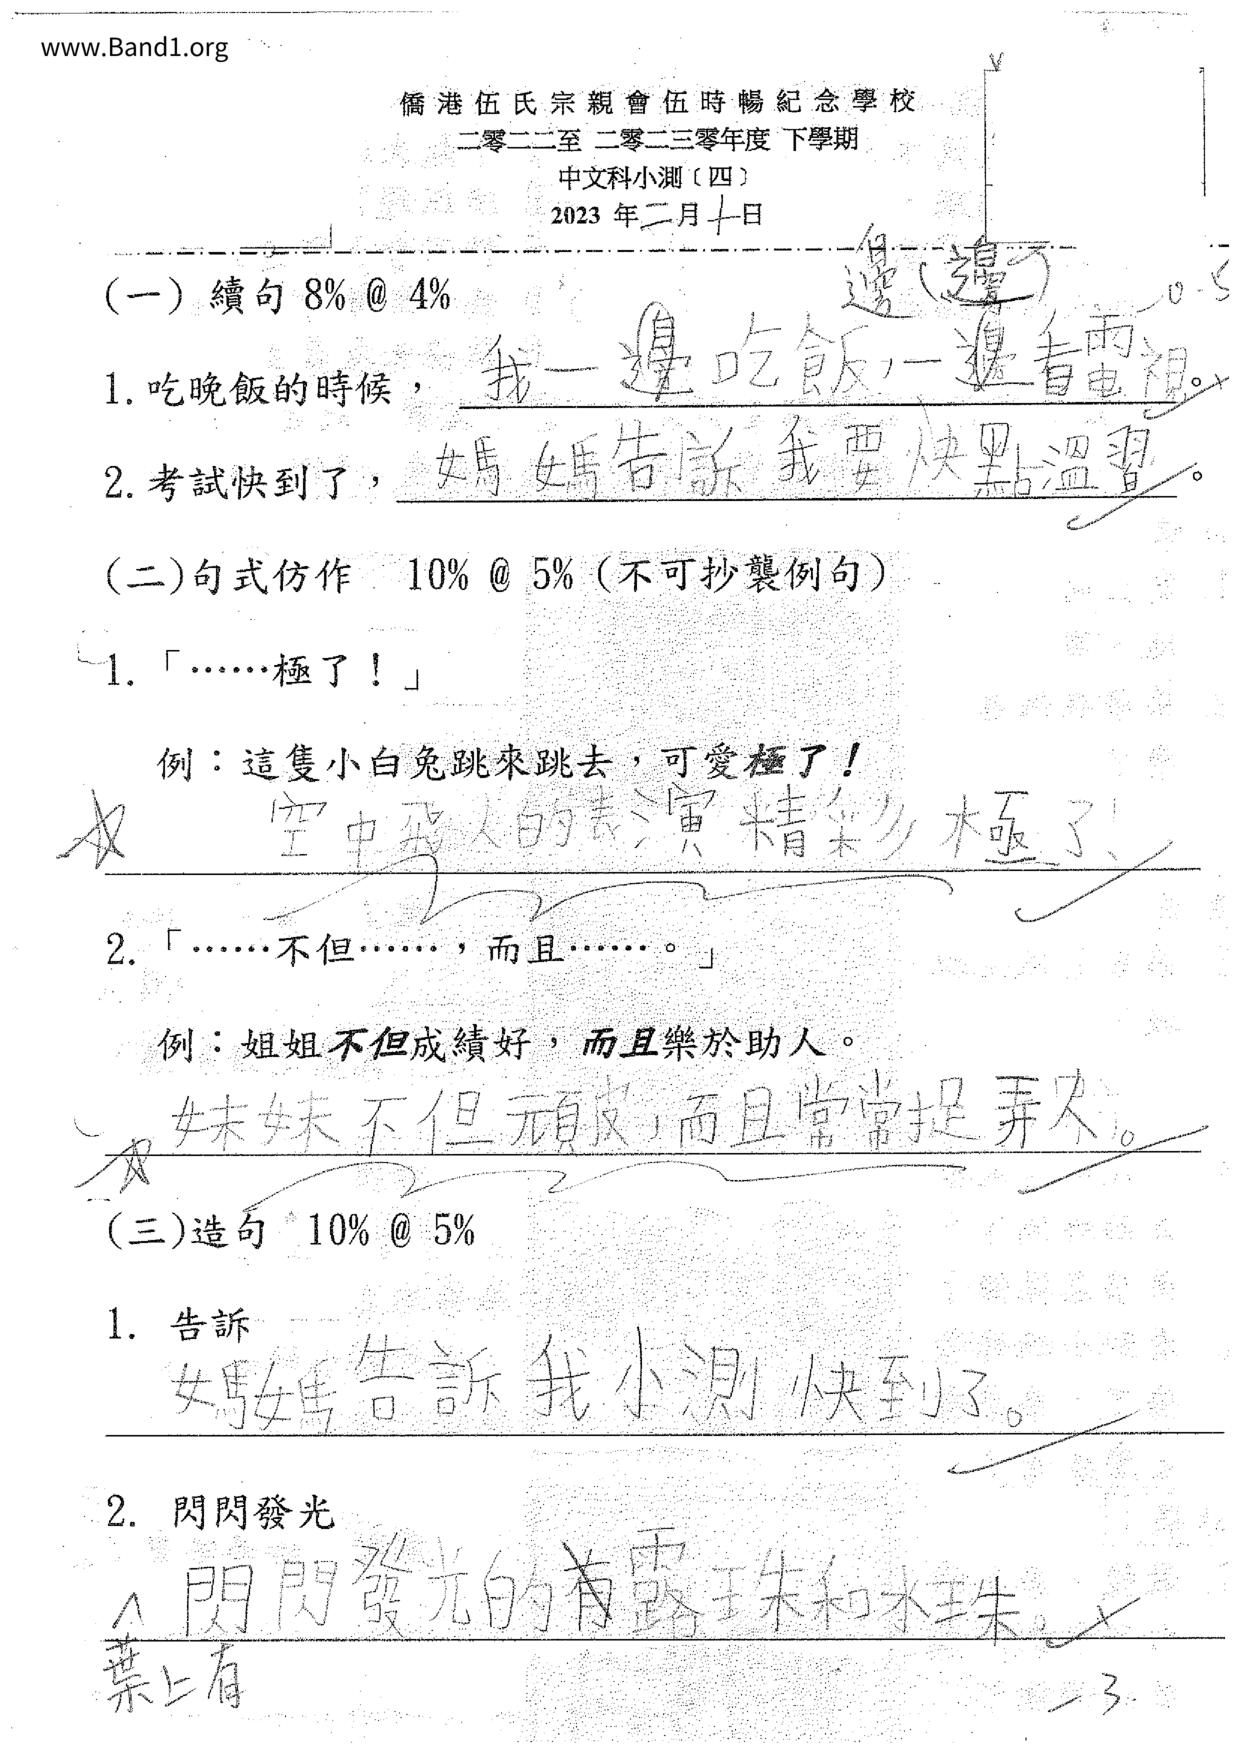 www.Band1.org
僑港伍氏宗親會伍時暢紀念學校
二零二二至 二零二三零年度 下學期
中文科小測﹝四﹞
2023 年二月十日
邊(邊)
(一) 續句 8% @ 4%
-0.5
1. 吃晚飯的時候，我一邊吃飯,一邊看電視。
2. 考試快到了，媽媽告訴我要快點溫習。
(二)句式仿作 10% @ 5% (不可抄襲例句)
1.「……極了！」
例：這隻小白兔跳來跳去，可愛極了！
空中飛人的表演精彩極了!
2.「……不但……，而且……。」
例：姐姐不但成績好，而且樂於助人。
妹妹不但頑皮,而且常常捉弄人。
(三)造句 10% @ 5%
1. 告訴
媽媽告訴我小測快到了。
2. 閃閃發光
閃閃發光的有露珠和水珠。
葉上有
-3